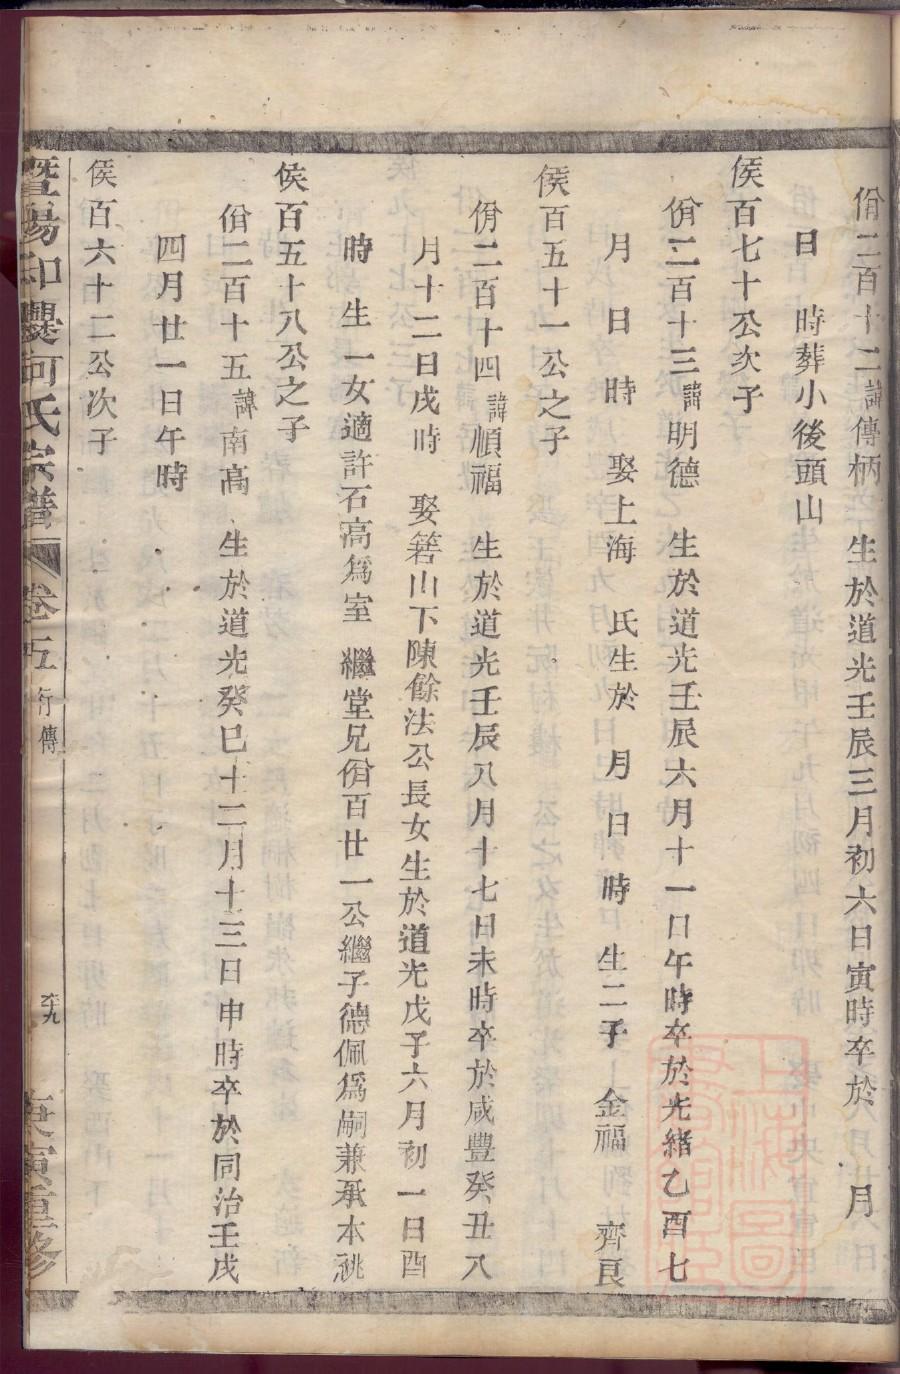 佾二百十二諱傳柄　生於道光壬辰三月初六日寅時卒於　月
日　時葬小後頭山
侯百七十公次子
佾二百十三諱明德　生於道光壬辰六月十一日午時卒於光緒乙酉七
月　日　時　娶上海　氏生於　月　日　時　生二子　金福　齊良
侯百五十一公之子
佾二百十四諱順福　生於道光壬辰八月十七日未時卒於咸豐癸丑八
月十二日戌時　娶箬山下陳餘法公長女生於道光戊子六月初一日酉
時　生一女適許石高爲室　繼堂兄佾百廿一公繼子德佩爲嗣兼承本祧
侯百五十八公之子
佾二百十五諱南高　生於道光癸巳十二月十三日申時卒於同治壬戌
四月廿一日午時
侯百六十二公次子
暨陽和瓔何氏宗譜　卷五　行傳　庚寅重修